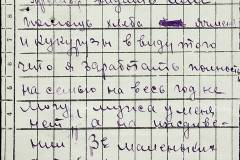 помощь хлеба ячменя
и кукурузы в виду этого
что я заработать полность
на семью на весь год не
могу, мужа у меня
нет а на иждиве-
нии 3е маленьких